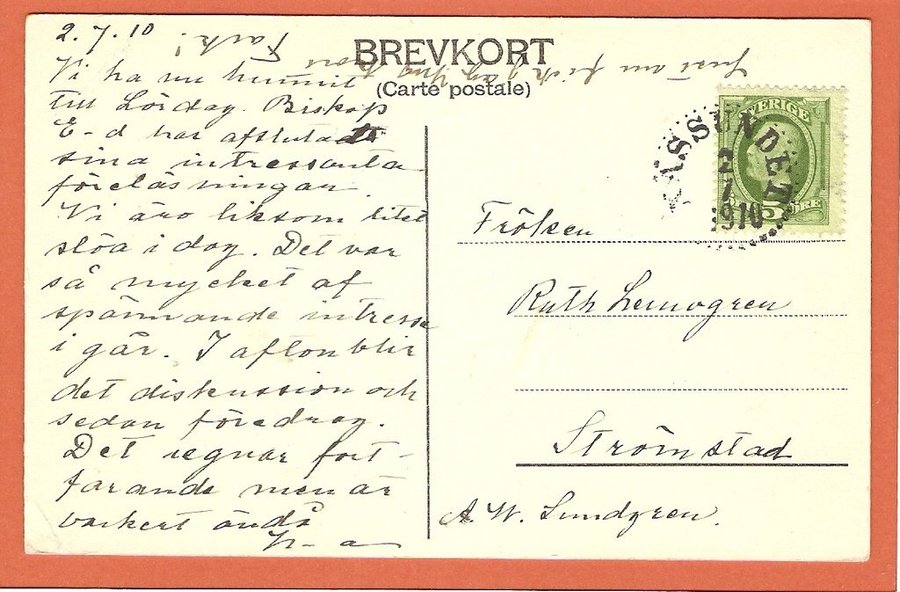 2.7.10
Vi ha nu hunnit
till Lördag. Biskop
E-d har afslutat
sina intressanta
föreläsningar.
Vi äro liksom litet
slöa i dag. Det var
så mycket af
spännande intresse
i går. I afton blir
det diskussion och
sedan föredrag.
Det regnar fort-
farande men är
vackert ändå
BREVKORT
(Carte postale)
SVERIGE
5 ÖRE
SUNDEN
2
7
1910
Fröken
Ruth
Strömstad
A. W. Lundgren.